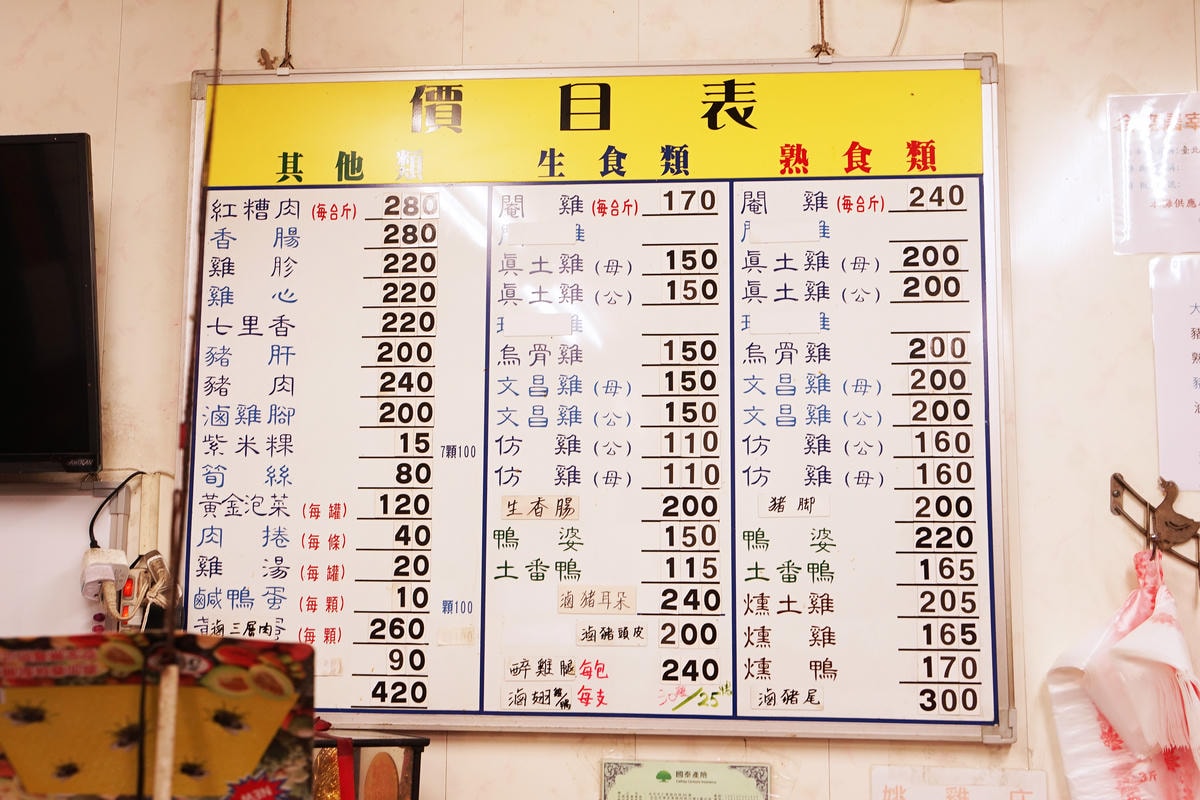 價目表
其他類
紅糟肉 (每台斤) 280
香腸 280
雞胗 220
雞心 220
七里香 220
豬肝 200
豬肉 240
滷雞腳 200
紫米粿 15 7顆100
筍絲 80
黃金泡菜 (每罐) 120
肉捲 (每條) 40
雞湯 (每罐) 20
鹹鴨蛋 (每顆) 10 顆100
滷三層肉 (每顆) 260
90
420
生食類
閹雞 (每台斤) 170
雞
真土雞 (母) 150
真土雞 (公) 150
雞
烏骨雞 150
文昌雞 (母) 150
文昌雞 (公) 150
仿雞 (公) 110
仿雞 (母) 110
生香腸 200
鴨婆 150
土番鴨 115
滷豬耳朵 240
滷豬頭皮 200
醉雞腿 每包 240
滷翅 每支 /25
熟食類
閹雞 (每台斤) 240
雞
真土雞 (母) 200
真土雞 (公) 200
雞
烏骨雞 200
文昌雞 (母) 200
文昌雞 (公) 200
仿雞 (公) 160
仿雞 (母) 160
猪脚 200
鴨婆 220
土番鴨 165
燻土雞 205
燻雞 165
燻鴨 170
滷豬尾 300
國泰產險
姚雞店